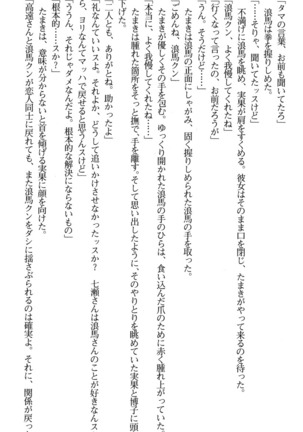 「タマの言葉、お前も聞いてたろ」
浪馬は拳を握りしめた。
「……そりゃ、聞いてたッスけど」
不満げに頬を膨らませ、実果が肩をすくめる。彼女はそのまま口を閉じ、たまきがやって来るのを待った。
「浪馬クン、よく我慢してくれたね」
「行くなって言ったの、お前だろうが」
「うん。そうだけど……」
たまきは浪馬の正面にしゃがみ、固く握りしめられた浪馬の手を取った。
「ごめんね、浪馬クン」
たまきが優しくその手を包む。ゆっくり開かれた浪馬の手のひらは、食い込んだ爪のために赤く腫れ上がっていた。
「本当に、よく我慢してくれたね……」
たまきは腫れた箇所をそっと撫で、手を離す。そして思い出したように、そのやりとりを眺めていた実果と博子に頭
を下げた。
「二人とも、ありがとね。助かったよ」
「礼なんていいスよ。それよか、どうして追いかけさせなかったッスか？　七瀬さんは浪馬さんのことが好きなんス
から、ヨリなんてマッハで戻せると思うんスけど」
「ううん、それじゃダメなんだよ。根本的な解決にならないもの」
「根本的、スか？」
たまきは、意味が分からないと首を傾げる実果に顔を向けた。
「高遠さんと浪馬クンが恋人同士に戻れても、また浪馬クンをダシに揺さぶられるのは確実よ。それに、関係が戻っ